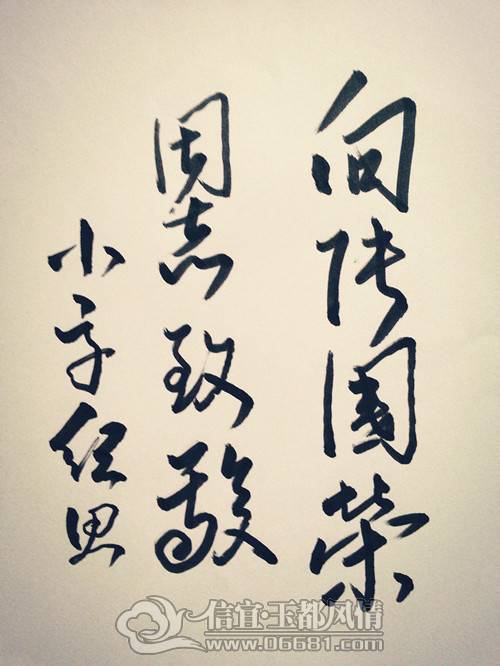 向张国荣
周志致敬
小字经思
信宜·玉都风情
www.06681.com